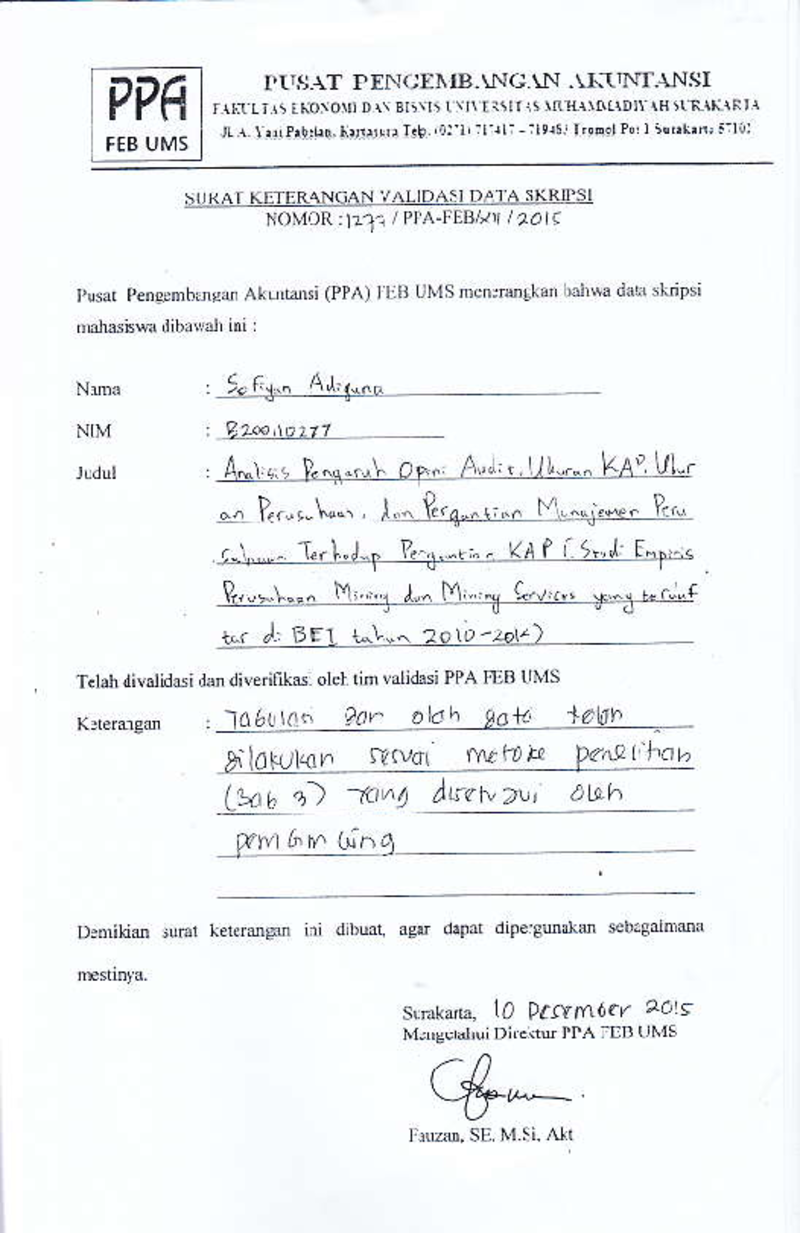 PPA
FEB UMS
PUSAT PENGEMBANGAN AKUNTANSI
FAKULTAS EKONOMI DAN BISNIS UNIVERSITAS MUHAMMADIYAH SURAKARTA
JL A. Yani Pabelan, Kartasura Telp. (0271) 717417 – 719483 Tromol Pos 1 Surakarta 57102
SURAT KETERANGAN VALIDASI DATA SKRIPSI
NOMOR : 1277 / PPA-FEB/XII / 2015
Pusat Pengembangan Akuntansi (PPA) FEB UMS menerangkan bahwa data skripsi
mahasiswa dibawah ini :
Nama : Sofiyan Adiguna
NIM : B200110277
Judul : Analisis Pengaruh Opini Audit, Ukuran KAP, Ukur
an Perusahaan, dan Pergantian Manajemen Peru
sahaan Terhadap Pergantian KAP (Studi Empiris
Perusahaan Mining dan Mining Services yang terdaf
tar di BEI tahun 2010-2014)
Telah divalidasi dan diverifikasi oleh tim validasi PPA FEB UMS
Keterangan : Tabulasi dan olah data telah
dilakukan sesuai metode penelitian
(Bab 3) yang disetujui oleh
pembimbing
Demikian surat keterangan ini dibuat, agar dapat dipergunakan sebagaimana
mestinya.
Surakarta, 10 Desember 2015
Mengetahui Direktur PPA FEB UMS
Fauzan, SE, M.Si, Akt